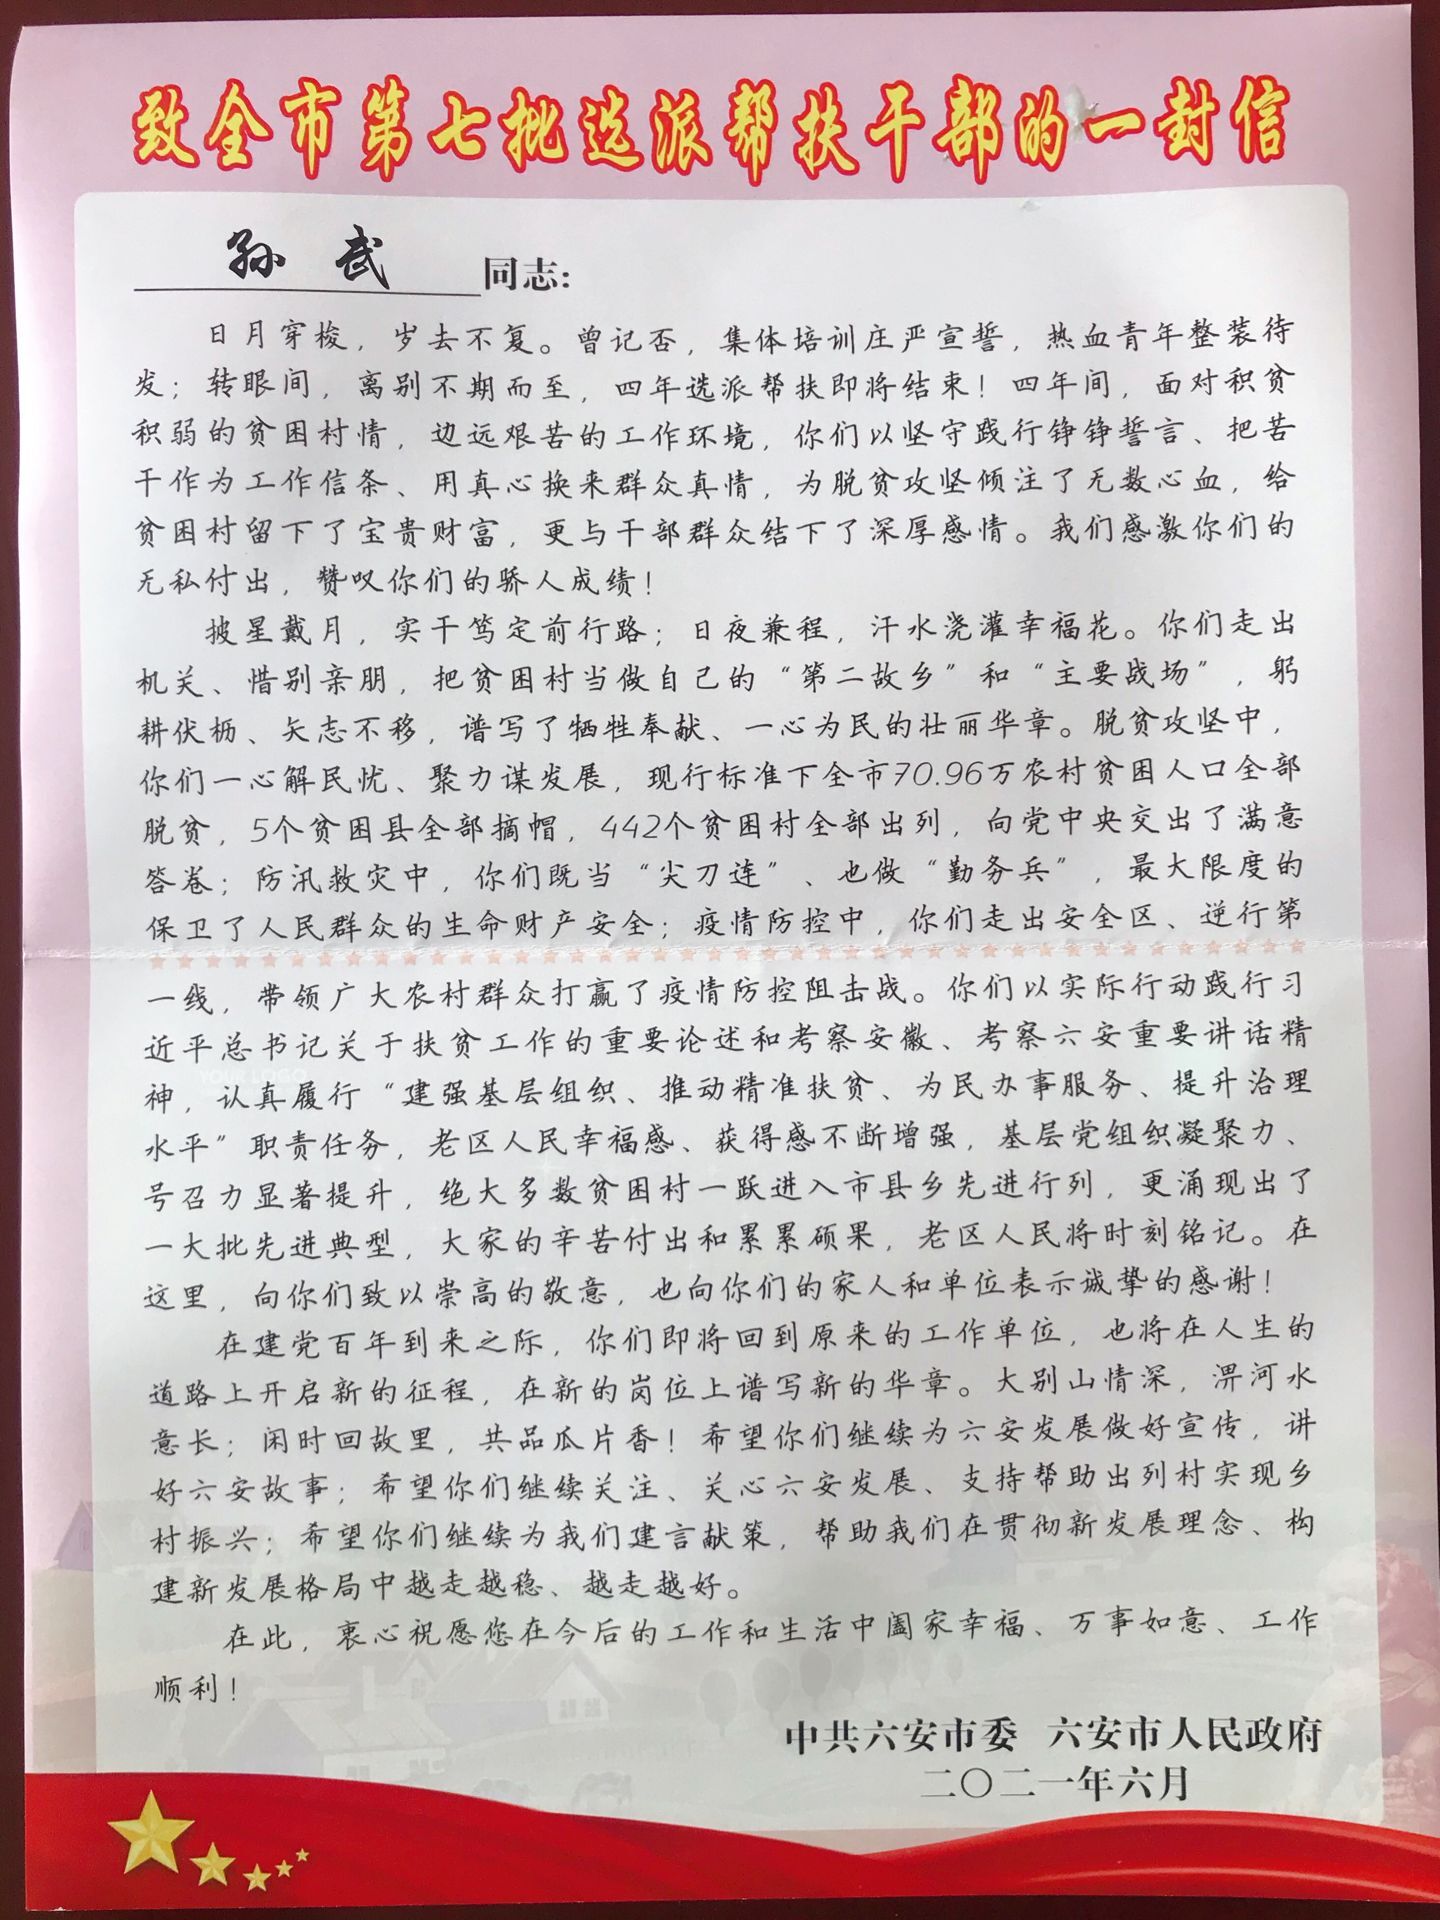 致全市第七批选派帮扶干部的一封信
孙 武 同志：
日月穿梭，岁去不复。曾记否，集体培训庄严宣誓，热血青年整装待
发；转眼间，离别不期而至，四年选派帮扶即将结束！四年间，面对积贫
积弱的贫困村情，边远艰苦的工作环境，你们以坚守践行铮铮誓言、把苦
干作为工作信条、用真心换来群众真情，为脱贫攻坚倾注了无数心血，给
贫困村留下了宝贵财富，更与干部群众结下了深厚感情。我们感激你们的
无私付出，赞叹你们的骄人成绩！
披星戴月，实干笃定前行路；日夜兼程，汗水浇灌幸福花。你们走出
机关、惜别亲朋，把贫困村当做自己的“第二故乡”和“主要战场”，躬
耕伏枥、矢志不移，谱写了牺牲奉献、一心为民的壮丽华章。脱贫攻坚中，
你们一心解民忧、聚力谋发展，现行标准下全市70.96万农村贫困人口全部
脱贫，5个贫困县全部摘帽，442个贫困村全部出列，向党中央交出了满意
答卷；防汛救灾中，你们既当“尖刀连”、也做“勤务兵”，最大限度的
保卫了人民群众的生命财产安全；疫情防控中，你们走出安全区、逆行第
一线，带领广大农村群众打赢了疫情防控阻击战。你们以实际行动践行习
近平总书记关于扶贫工作的重要论述和考察安徽、考察六安重要讲话精
YOUR LOGO
神，认真履行“建强基层组织、推动精准扶贫、为民办事服务、提升治理
水平”职责任务，老区人民幸福感、获得感不断增强，基层党组织凝聚力、
号召力显著提升，绝大多数贫困村一跃进入市县乡先进行列，更涌现出了
一大批先进典型，大家的辛苦付出和累累硕果，老区人民将时刻铭记。在
这里，向你们致以崇高的敬意，也向你们的家人和单位表示诚挚的感谢！
在建党百年到来之际，你们即将回到原来的工作单位，也将在人生的
道路上开启新的征程，在新的岗位上谱写新的华章。大别山情深，淠河水
意长；闲时回故里，共品瓜片香！希望你们继续为六安发展做好宣传，讲
好六安故事；希望你们继续关注、关心六安发展、支持帮助出列村实现乡
村振兴；希望你们继续为我们建言献策，帮助我们在贯彻新发展理念、构
建新发展格局中越走越稳、越走越好。
在此，衷心祝愿您在今后的工作和生活中阖家幸福、万事如意、工作
顺利！
中共六安市委 六安市人民政府
二〇二一年六月